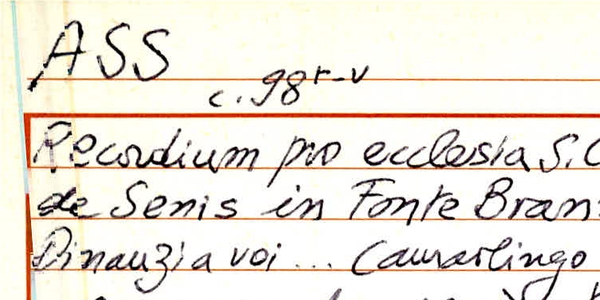 ASS
c. 98 r-v
Recordium pro ecclesia S. C
de Senis in Fonte Bran
Dinanzia voi ... Camarlingo